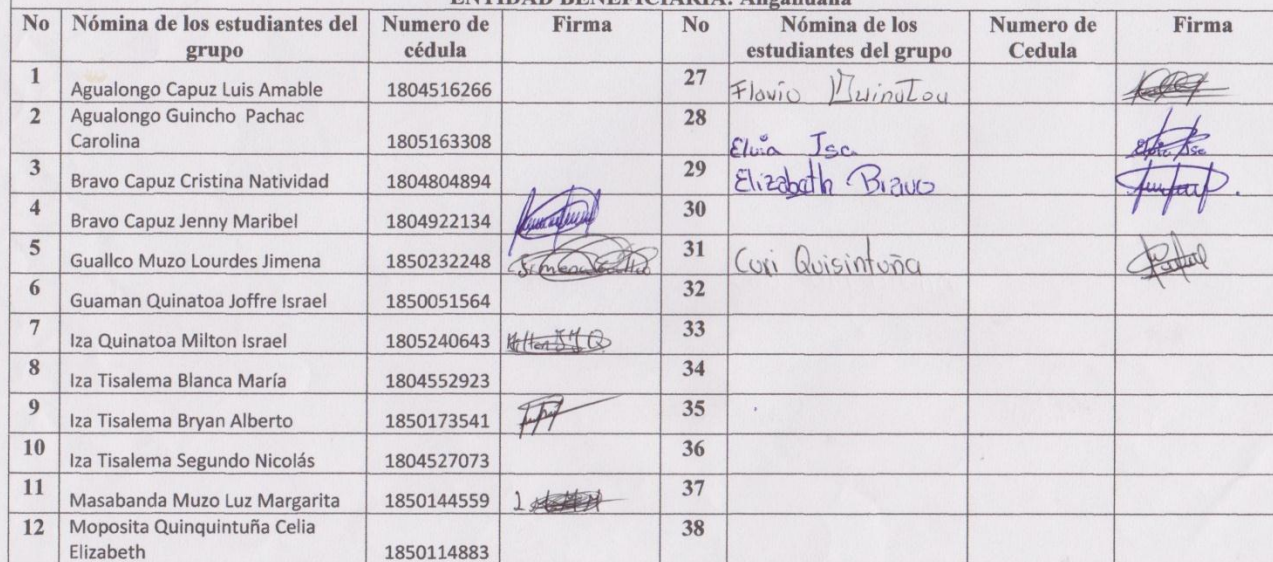 ENTIDAD BENEFICIARIA: Angahuana
No Nómina de los estudiantes del grupo Numero de cédula Firma No Nómina de los estudiantes del grupo Numero de Cedula Firma
1 Agualongo Capuz Luis Amable 1804516266 27 Flavio
2 Agualongo Guincho Pachac Carolina 1805163308 28 Elvia
3 Bravo Capuz Cristina Natividad 1804804894 29 Elizabeth Bravo
4 Bravo Capuz Jenny Maribel 1804922134 30
5 Guallco Muzo Lourdes Jimena 1850232248 31 Curi Quisintuña
6 Guaman Quinatoa Joffre Israel 1850051564 32
7 Iza Quinatoa Milton Israel 1805240643 33
8 Iza Tisalema Blanca María 1804552923 34
9 Iza Tisalema Bryan Alberto 1850173541 35
10 Iza Tisalema Segundo Nicolás 1804527073 36
11 Masabanda Muzo Luz Margarita 1850144559 37
12 Moposita Quinquintuña Celia Elizabeth 1850114883 38